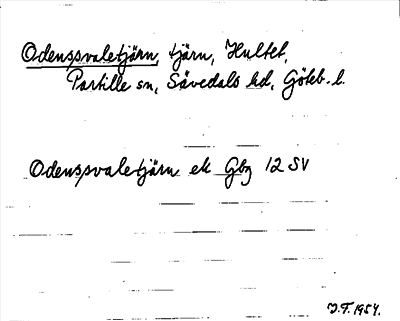 Odenspvaletjärn, tjärn, Hultet,
Partille sn, Sävedals hd, Göteb. l.
Odenspvaletjärn ek Gbg 12 SV
J.F. 1954.